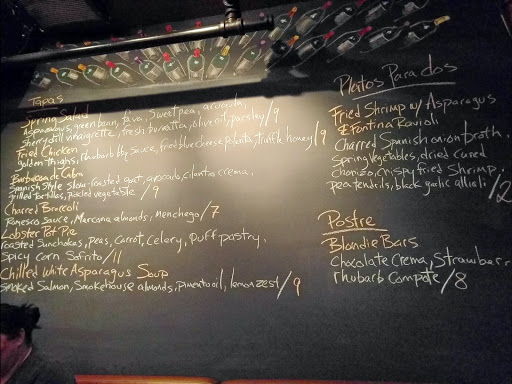 Tapas
Spring Salad
Asparagus, green bean, fava, Sweet pea, arugula,
sherry dill vinaigrette, fresh burratta, olive oil, parsley /9
Fried Chicken
golden thighs, rhubarb bbq sauce, fried blue cheese polenta, truffle honey /9
Barbacoa de Cabra
Spanish Style slow-roasted goat, avocado, cilantro crema,
grilled tortillas, pickled vegetable /9
Charred Broccoli
Romesco sauce, Marcona almonds, menchego /7
Lobster Pot Pie
roasted Sunchokes, peas, Carrot, Celery, Puff pastry,
Spicy corn Sofrito /11
Chilled white Asparagus Soup
Smoked Salmon, Smokehouse almonds, pimenton oil, lemon zest /9
Platos Para dos
Fried Shrimp w/ Asparagus
& Fontina Ravioli
Charred Spanish onion broth,
Spring vegetables, dried cured
chorizo, crispy fried Shrimp,
pea tendrils, black garlic allioli /12
Postre
Blondie Bars
Chocolate Crema, Strawberry
rhubarb Compote /8